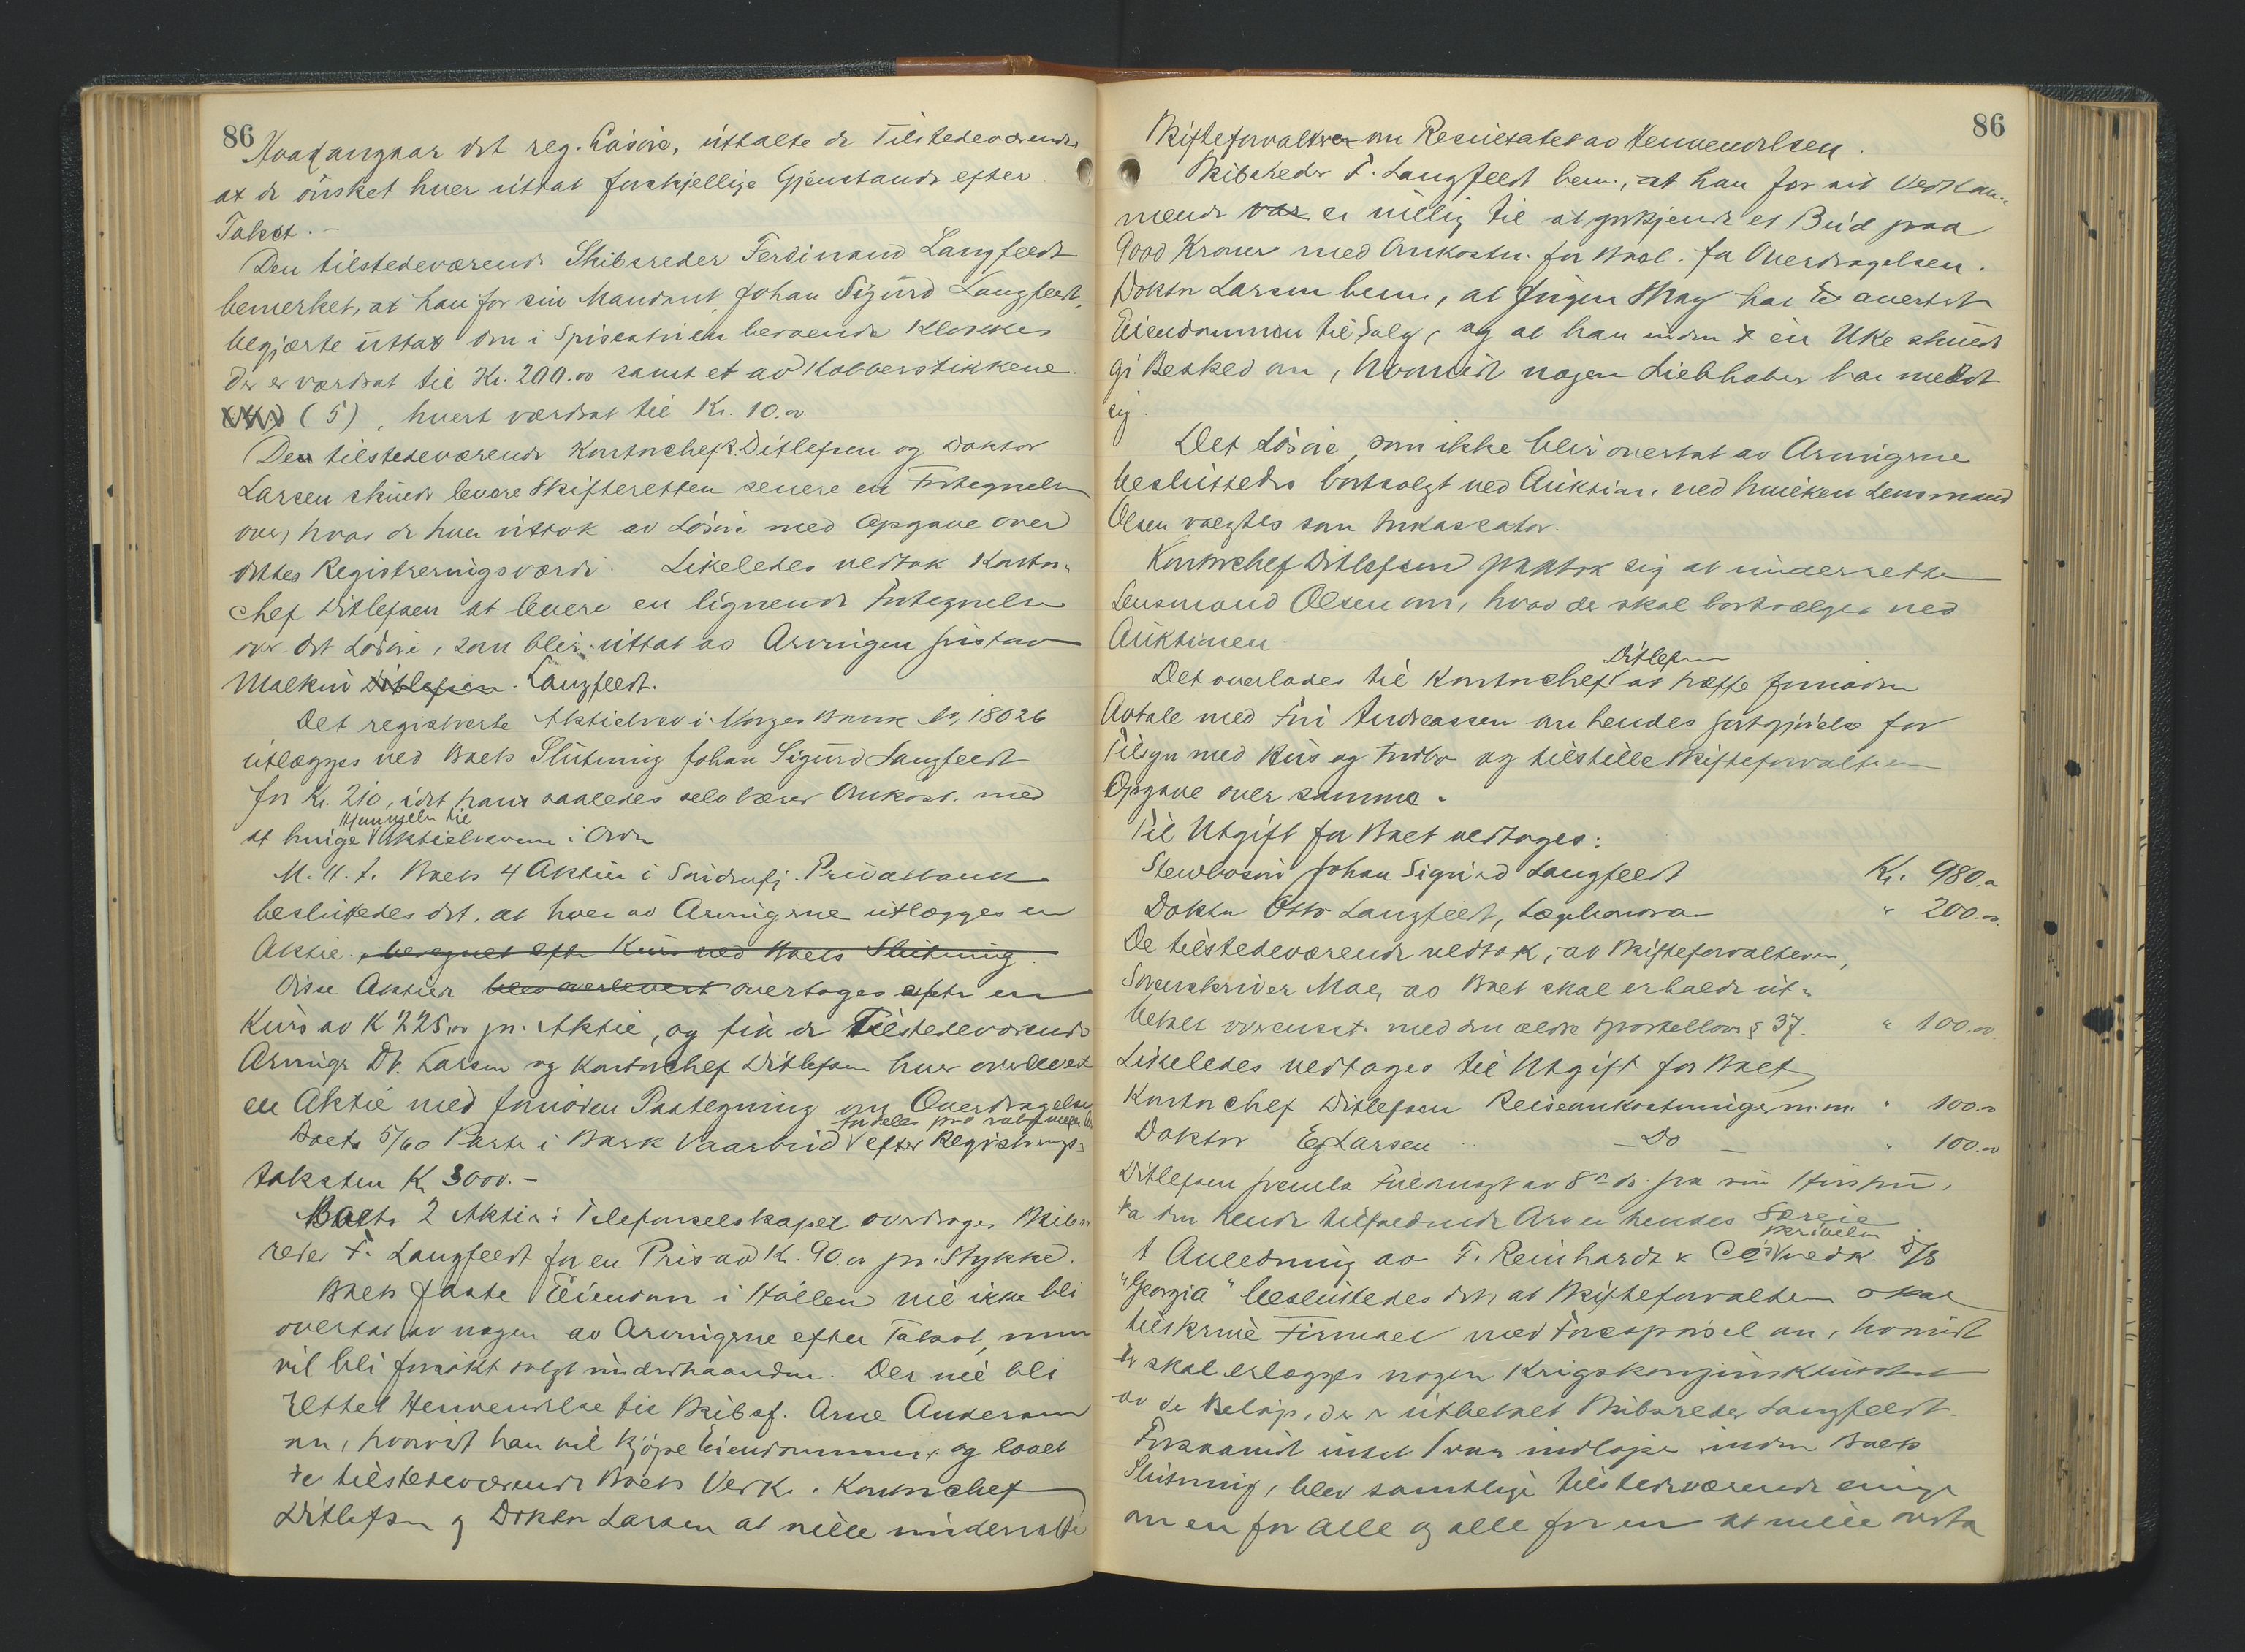 86
Hvad angaar det reg. Løsøre, uttalte de Tilstedeværende,
at de ønsket hver uttat forskjellige Gjenstande efter
Takst. –
Den tilstedeværende Skibsreder Ferdinand Langfeldt
bemerket, at han for sin Mandant, Johan Sigurd Langfeldt,
begjærte uttat den i Spisestuen beroende Klokke,
der er værdsat til Kr. 200.00 samt et av Kobberstikkene
(5), hvert værdsat til Kr. 10.00
Den tilstedeværende Kontorchef Ditlefsen og Doktor
Larsen skulde levere Skifteretten senere en Fortegnelse
over, hvad de hver uttok av Løsøre med Opgave over
dettes Registreringsværdi. Likeledes vedtok Kontor-
chef Ditlefsen at levere en lignende Fortegnelse
over det Løsøre, som blir uttat av Arvingen Gustav
Ditlefsen. Langfeldt.
Det registrerte Aktiebrev i Norges Bank No. 18026
utlægges ved Boets Slutning Johan Sigurd Langfeldt
for Kr. 210, idet han saaledes selv bærer Omkost. med
at bringe Hjemmelen til Aktiebrevene i Orden
M. H. t. Boets 4 Aktier i Søndenfj. Privatbank
besluttedes det, at hver av Arvingerne utlægges en
Aktie., beregnet efter Kurs ved Boets Slutning.
Disse Aktier blev overlevert overtages efter en
Kurs av K 225,00 pr. Aktie, og fik de Tilstedeværende
Arvinger Dr. Larsen og Kontorchef Ditlefsen hver overlevert
en Aktie med fornøden Paategning om Overdragelse
Boets 5/60 Parter i Bark Vaarbud fordeles pro rata efter Registrerings-
taksten K 3000.–
Boets 2 Aktier i Telefonselskapet overdrages Skibs-
reder F. Langfeldt for en Pris av Kr. 90.00 pr. Stykke.
Boets faste Eiendom i Høllen vil ikke bli
overtat av nogen av Arvingerne efter Takst, men
vil bli forsøkt solgt underhaanden. Der vil bli
rettet Henvendelse til Skibsf. Arne Anderson
om, hvorvidt han vil kjøpe Eiendommen, og lovet
de tilstedeværende Boets Verk., Kontorchef
Ditlefsen og Doktor Larsen at ville underrette
86
Skifteforvalteren om Resultatet av Henvendelsen.
Skibsreder F. Langfeldt bem., at han for sit Vedkom-
mende var er villig til at godkjende et Bud paa
9000 Kroner med Omkostn. for Boet for Overdragelsen.
Doktor Larsen bem., at Jørgen Skag har avertert
Eiendommen til Salg, og at han inden en Uke skulde
gi Besked om, hvorvidt nogen Liebhaber har meldt
sig.
Det Løsøre som ikke blir overtat av Arvingerne
besluttedes bortsolgt ved Auktion, ved hvilken Lensmand
Olsen valgtes som Inkassator.
Kontorchef Ditlefsen paatok sig at underrette
Lensmand Olsen om, hvad der skal bortsælges ved
Auktionen.
Det overlades til Kontorchef Ditlefsen at træffe fornøden
Avtale med Fru Andreassen om hendes Godtgjørelse for
Tilsyn med Hus og Indbo og tilstille Skifteforvalteren
Opgave over samme.
Til Utgift for Boet vedtoges:
Stenhosin Johan Sigurd Langfeldt Kr. 980.00
Doktor Otto Langfeldt, Lægehonorar " 200.00
De tilstedeværende vedtok, at Skifteforvalteren,
Sorenskriver Moe, av Boet skal erholde ut-
betalt overensst. med den ældre Sportellovs § 37. " 100.00
Likeledes vedtoges til Utgift for Boet
Kontorchef Ditlefsen Reiseomkostninger m.m. " 100.00
Doktor Eg Larsen – Do – " 100.00
Ditlefsen fremla Fuldmagt av 8de ds. fra sin Hustru,
da den hende tilfaldende Arv er hendes Særeie.
I Anledning av F. Reinhardt & Co's Skrivelse vedk. D/S
"Georgia" besluttedes det, at Skifteforvalteren skal
tilskrive Firmaet med Forespørsel om, hvorvidt
der skal erlægges nogen Krigskonjunkturskat
av de Beløp, der er utbetalt Skibsreder Langfeldt.
Forsaavidt intet Svar indløper inden Boets
Slutning, blev samtlige tilstedeværende enige
om en for alle og alle for en at ville overta